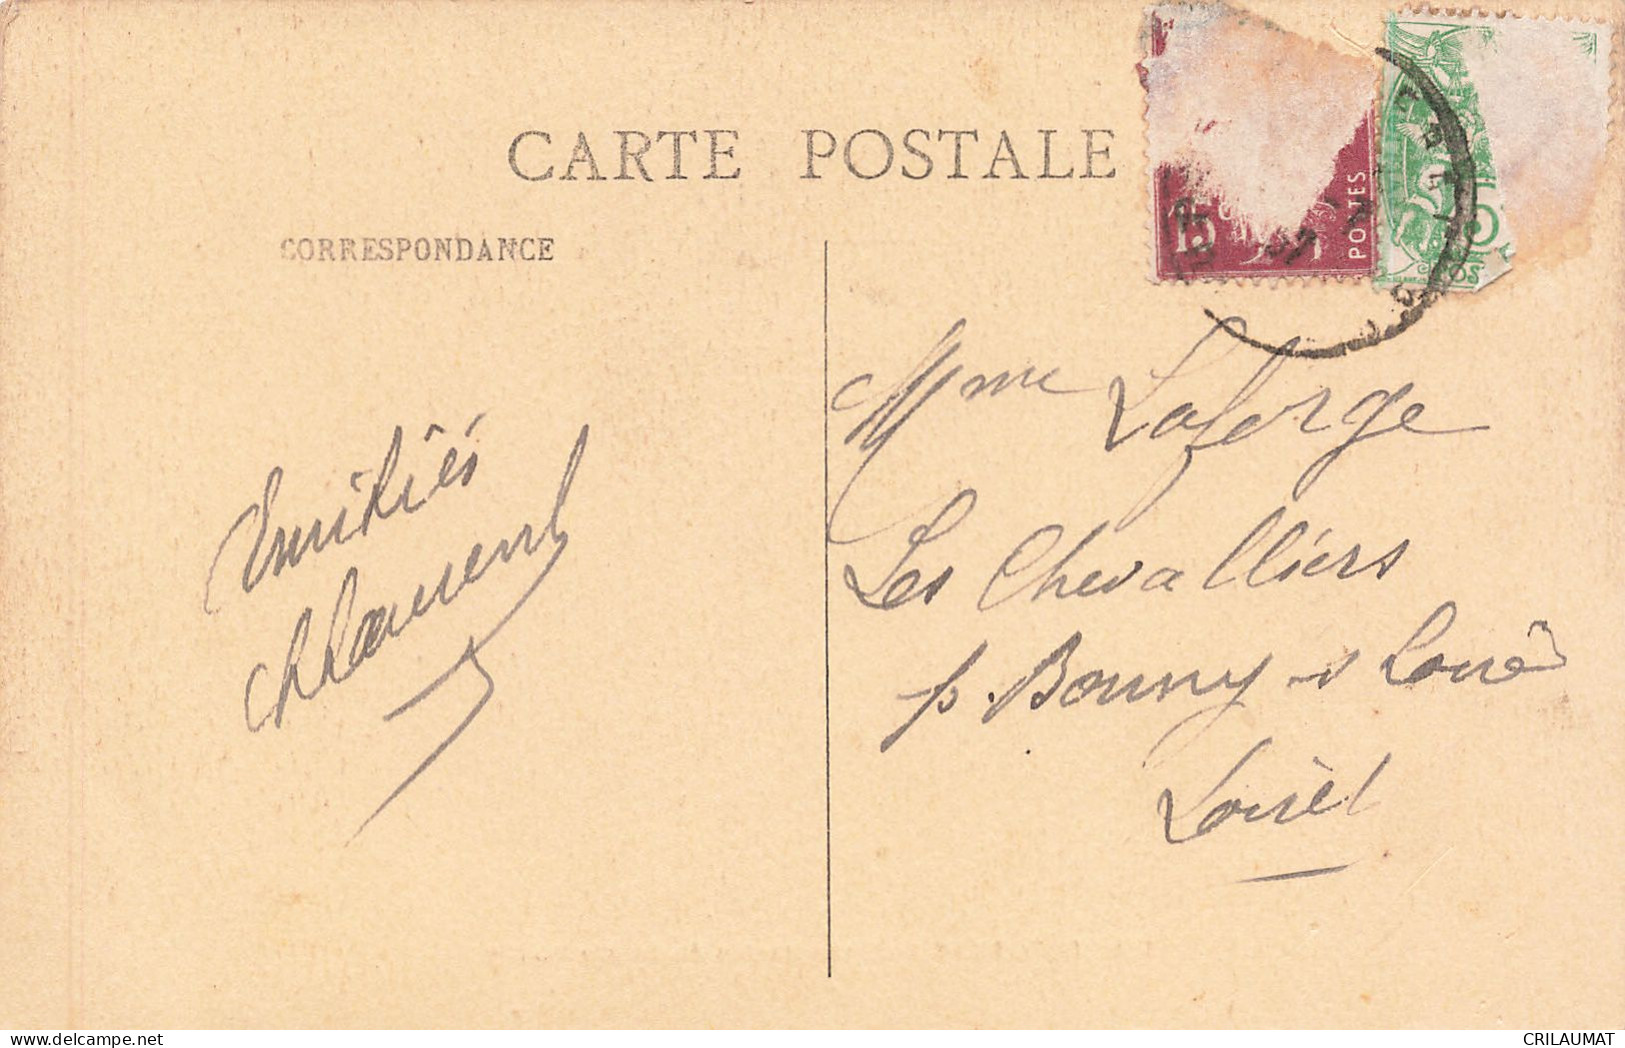 CARTE POSTALE
CORRESPONDANCE
15
POSTES
Amitiés
Mme Laforge
Les Chevalliers
p. Bonny-s Loire
Loirèt
CRILAUMAT